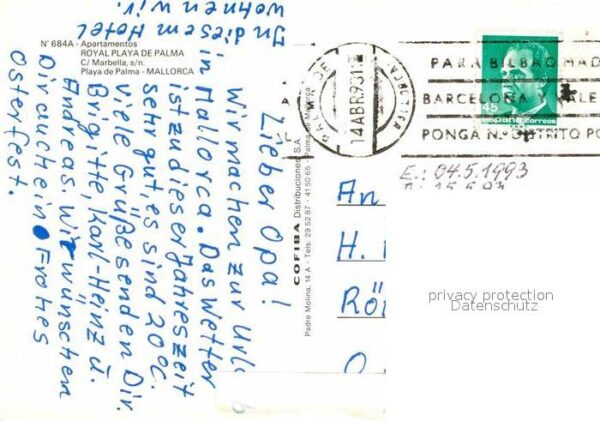 In diesem Hotel
wohnen wir.
N° 684A - Apartamentos
ROYAL PLAYA DE PALMA
C/ Marbella, s/n.
Playa de Palma - MALLORCA
Lieber Opa!
Wir machen zur
in Mallorca. Das Wetter
ist zu dieser Jahreszeit
sehr gut, es sind 20°C.
Viele Grüße senden Dir
Brigitte, Karl-Heinz u.
Andreas. Wir wünschen
Dir auch ein Frohes
Osterfest.
COFIBA Distribuciones, S.A.
Padre Molina, 14 A - Tels. 29 52 87 - 41 50 65 - Palma de Mallorca
14 ABR 93
PARA BILBAO MAD
BARCELONA
PONGA N.° DISTRITO PO
45
España correos
E.: 04.5.1993
An
H.
privacy protection
Datenschutz